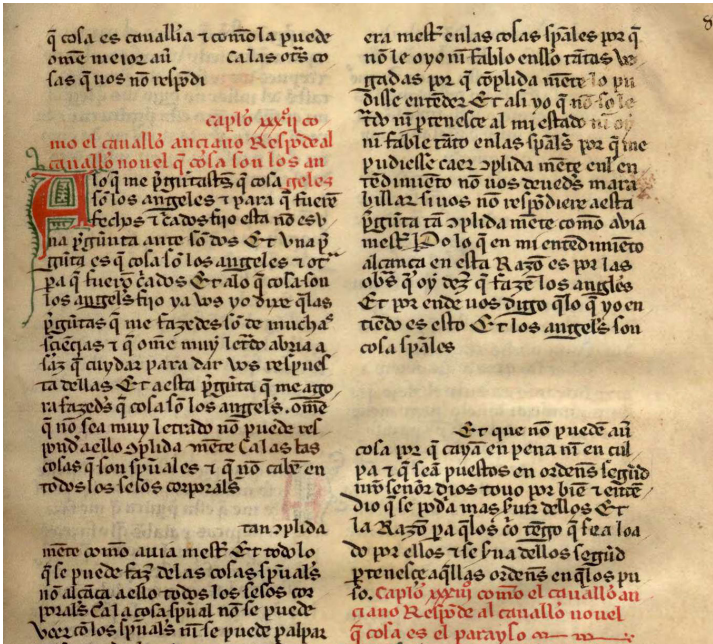 q̄ cosa es cauallia ⁊ comola puede
om̄e meior au̅ Ca las otͣs co
sas q̄ uos nō respōdi
Caplo xxxij co
mo el cauallo anciano Respōde al
cauallo nouel q̄ cosa son los an
A lo q̄ me p̄gūtastes q̄ cosa geles
sō los angeles ⁊ para q̄ fuerō
fechos ⁊ c̄ados fijo esta nō es v
na p̄gūnta ante sō dos Et vna p̄
gūta es q̄ cosa sō los angeles ⁊ otͣ
pa q̄ fuerō c̄ados Et alo q̄ cosa son
los angels fijo ya vos yo dixe q̄las
p̄gūtas q̄ me fazedes sō de muchas
sciēçias ⁊ q̄ ome muy letͣdo abria a
saz q̄ cuydar para dar vos respues
ta dellas Et aesta p̄gūta q̄ me ago
ra fazeds q̄ cosa sō los angels. ome
q̄ nō sea muy letrado nō puede res
pōnd aello ɔplida mēte Ca las tas
cosas q̄ son spūales ⁊ q̄ nō cabē en
todos los sesos corporals
tan ɔplida
mēte como auia mest̄ Et todo lo
q̄ se puede faz̄ delas cosas spūals
nō alcāça aello todos los sesos cor
porals Ca la cosa spūal nō se puede
veer cō los spūals ni se puede palpar
era mest̄ enlas cosas spūales por q̄
nō le oyo ni fablo enllo tātas ve
gadas por q̄ cōplida mēte lo pu
disse entēder Et asi yo q̄ nō so le
tͣdo ni p̄tenesce al mi estado ni oy
ni fable tāto enlas spūals por q̄ me
pudiesse caer ɔplida mēte enl en
tēdimiēto nō uos deueds mara
billar si uos nō respōdiere aesta
p̄gūta tā ɔplida mēte como avia
mest̄ Po lo q̄ en mi entēdimiēto
alcança en esta Razō es por las
obͣs q̄ oy dez̄ q̄ fazē los angles
Et por ende uos digo q̄lo q̄ yo en
tiēdo es esto Et los angels son
cosa spūales
Et que nō puedē au̅
cosa por q̄ cayā en pena ni en cul
pa ⁊ q̄ seā puestos en ordens segūd
nr̄o senor dios touo por biē ⁊ entē
dio q̄ se podͣa mas s̄uir dellos Et
la Razō pa q̄los c̄o tēgo q̄ fꝫa loa
do por ellos ⁊ se s̄ua dellos segūd
p̄tenesce aq̄llas ordens en q̄los pu
so. Caplo xxxiij como el cauallo an
ciano Respōde al cauallo nouel
q̄ cosa es el parayso